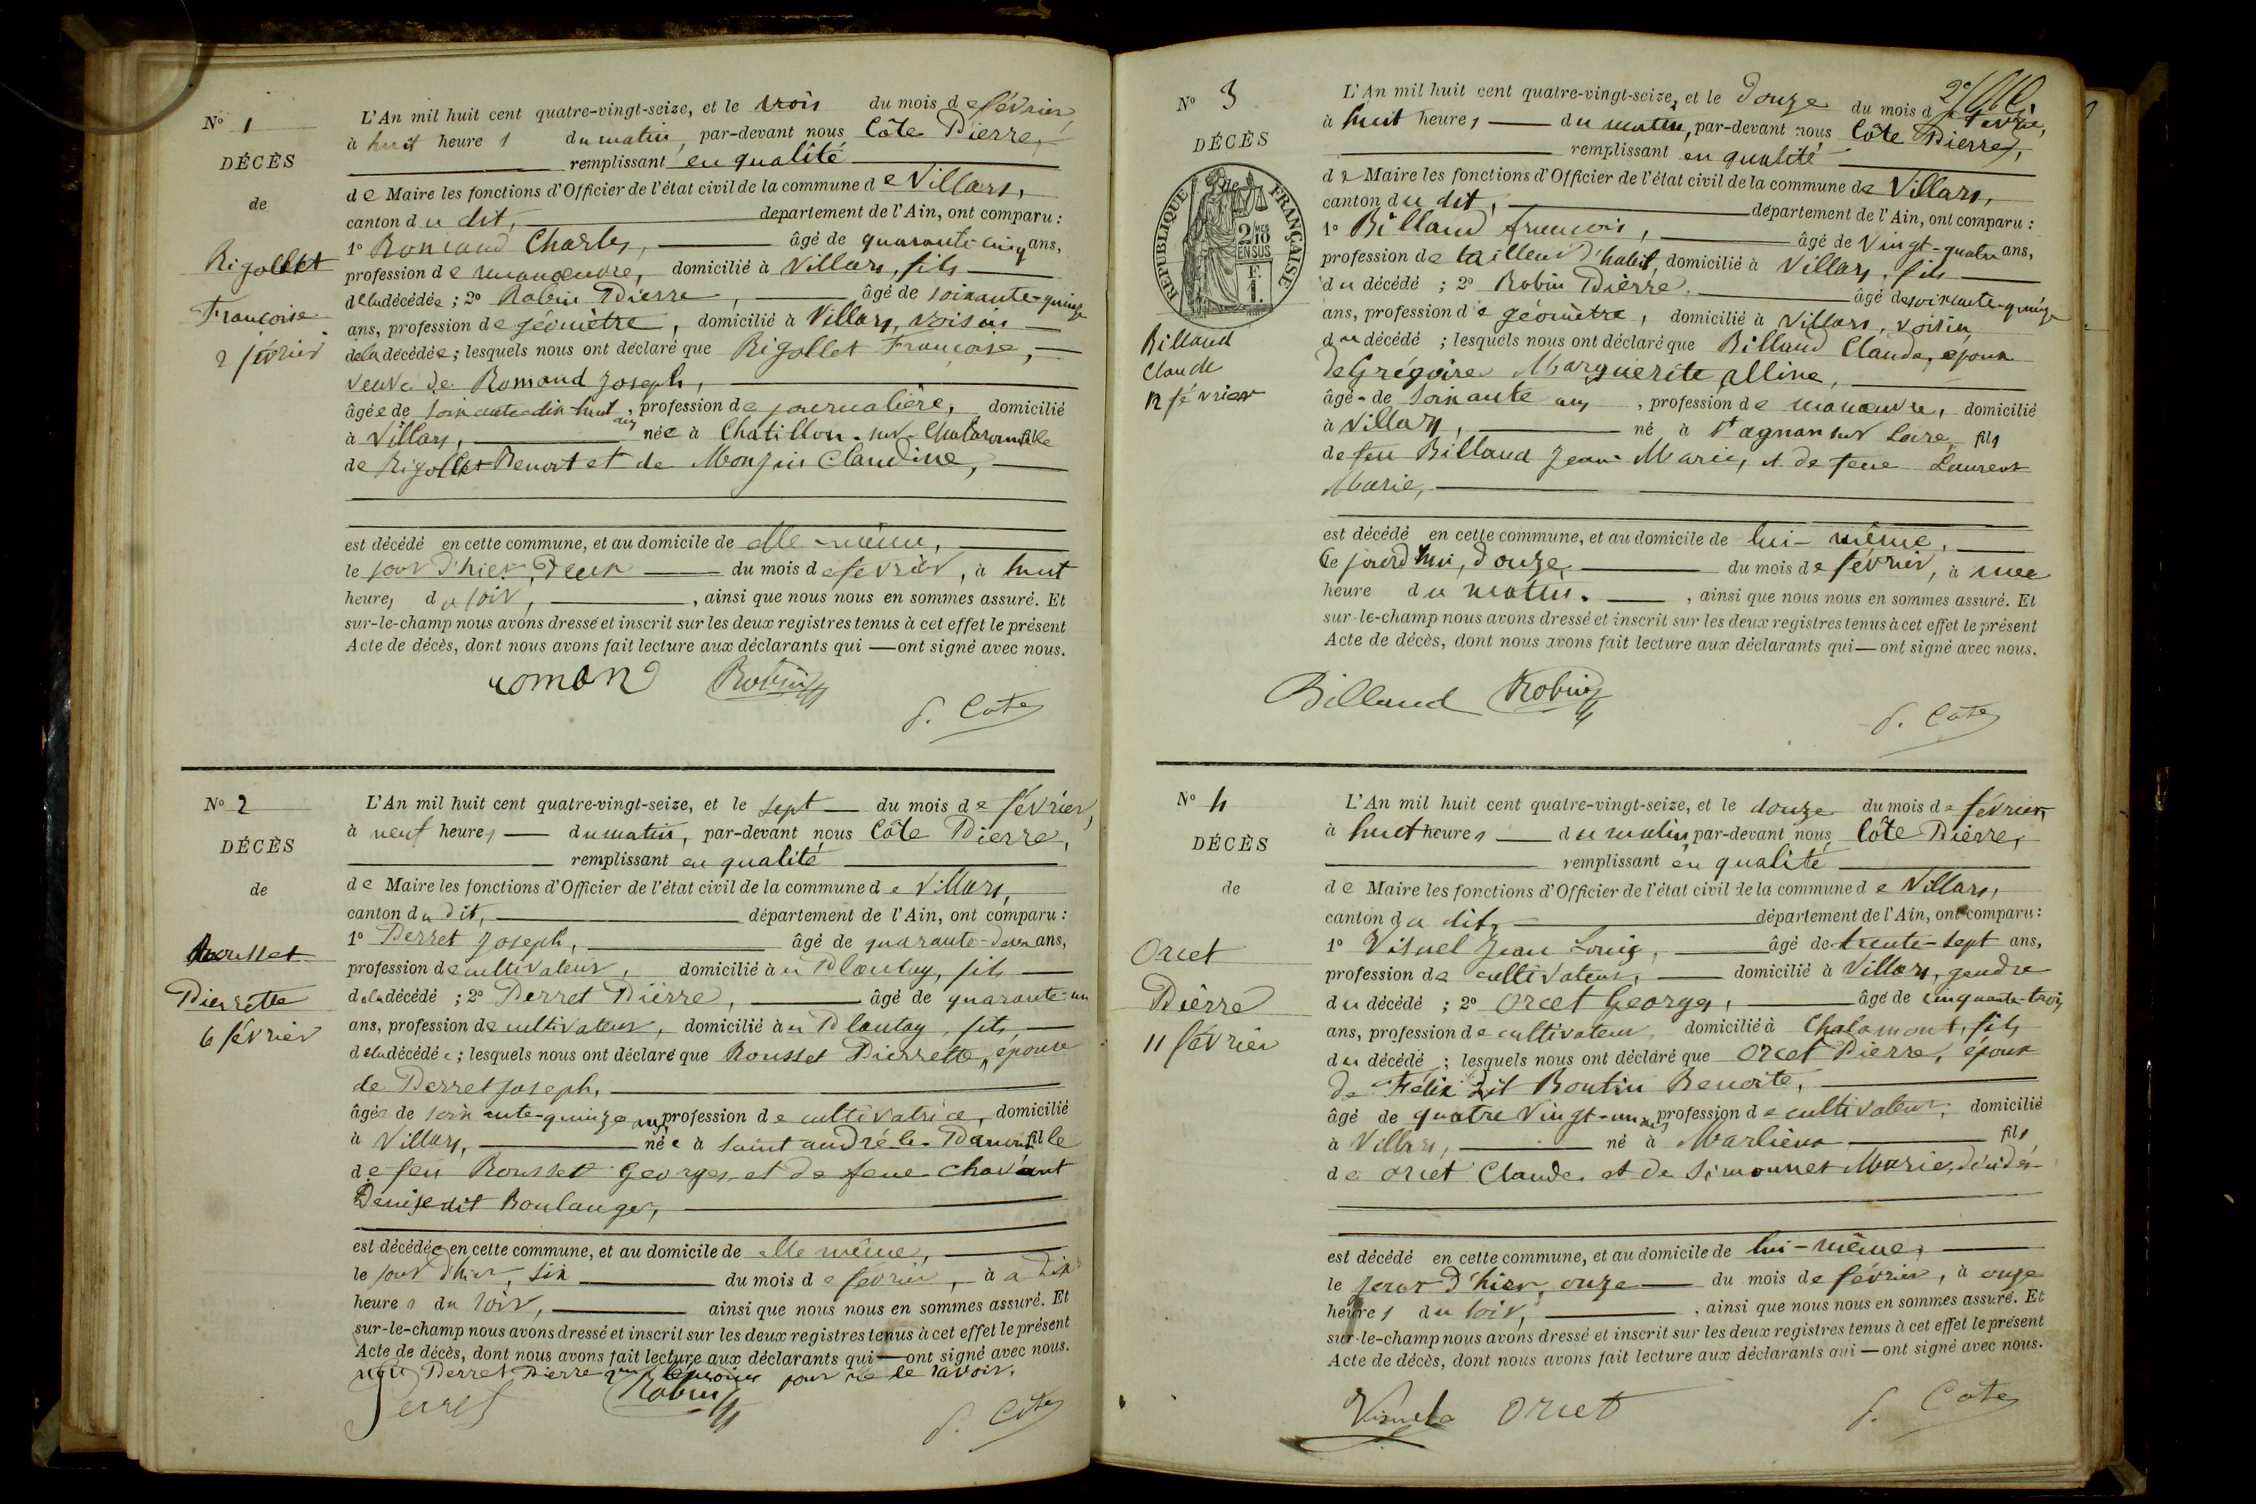 N° 1
DÉCÈS
de
Rigollet
Françoise
2 février
L'An mil huit cent quatre-vingt-seize, et le trois du mois de février,
à huit heures du matin, par-devant nous Côte Pierre,
remplissant en qualité
de Maire les fonctions d'Officier de l'état civil de la commune de Villars,
canton du dit, département de l'Ain, ont comparu :
1° Romand Charles, âgé de quarante-cinq ans,
profession de manoeuvre, domicilié à Villars, fils
de la décédée ; 2° Robin Pierre, âgé de soixante-quinze
ans, profession de géomètre, domicilié à Villars, voisin
de la décédée ; lesquels nous ont déclaré que Rigollet Françoise,
veuve de Romand Joseph,
âgée de soixante-dix-huit ans, profession de journalière, domicilié
à Villars, née à Chatillon-sur-Chalaronne fille
de Rigollet Benoit et de Monjuis Claudine,
est décédé en cette commune, et au domicile de elle-même,
le jour d'hier, deux du mois de février, à huit
heures du soir, ainsi que nous nous en sommes assuré. Et
sur-le-champ nous avons dressé et inscrit sur les deux registres tenus à cet effet le présent
Acte de décès, dont nous avons fait lecture aux déclarants qui — ont signé avec nous.
romand Robin
P. Cote
N° 2
DÉCÈS
de
Rousset
Pierrette
6 février
L'An mil huit cent quatre-vingt-seize, et le sept du mois de février,
à neuf heures du matin, par-devant nous Côte Pierre,
remplissant en qualité
de Maire les fonctions d'Officier de l'état civil de la commune de Villars,
canton du dit, département de l'Ain, ont comparu :
1° Perret Joseph, âgé de quarante-deux ans,
profession de cultivateur, domicilié à u Plantay, fils
de la décédé ; 2° Perret Pierre, âgé de quarante-un
ans, profession de cultivateur, domicilié à u Plantay, fils,
de la décédée ; lesquels nous ont déclaré que Rousset Pierrette, épouse
de Perret Joseph,
âgée de soixante-quinze ans, profession de cultivatrice, domicilié
à Villars, née à Saint andré le Panoux fille
de feu Rousset Georges et de feue Chavant
Denise dit Boulanger,
est décédée en cette commune, et au domicile de elle même,
le jour d'hier, six du mois de février, à dix
heures du soir, ainsi que nous nous en sommes assuré. Et
sur-le-champ nous avons dressé et inscrit sur les deux registres tenus à cet effet le présent
Acte de décès, dont nous avons fait lecture aux déclarants qui — ont signé avec nous.
Perret Pierre pour ne le savoir.
Perret Robin
P. Cote
N° 3
DÉCÈS
de
RÉPUBLIQUE FRANÇAISE
2 MES
10
EN SUS
F.
1.
Billaud
Claude
12 février
2e
L'An mil huit cent quatre-vingt-seize, et le douze du mois de février,
à huit heures du matin, par-devant nous Côte Pierre,
remplissant en qualité
de Maire les fonctions d'Officier de l'état civil de la commune de Villars,
canton du dit, département de l'Ain, ont comparu :
1° Billaud françois, âgé de vingt-quatre ans,
profession de tailleur d'habit, domicilié à Villars, fils
du décédé ; 2° Robin Pierre. âgé de soixante-quinze
ans, profession de géomètre, domicilié à Villars, voisin
du décédé ; lesquels nous ont déclaré que Billaud Claude, époux
de Grégoire Marguerite alline,
âgé de soixante ans, profession de manoeuvre, domicilié
à Villars, né à St agnan sur Loire, fils
de feu Billaud Jean Marie, et de feue Laurent
Marie,
est décédé en cette commune, et au domicile de lui-même,
Ce jourd'hui, douze, du mois de février, à une
heure du matin. ainsi que nous nous en sommes assuré. Et
sur-le-champ nous avons dressé et inscrit sur les deux registres tenus à cet effet le présent
Acte de décès, dont nous avons fait lecture aux déclarants qui — ont signé avec nous.
Billaud Robin
P. Cote
N° 4
DÉCÈS
de
Orcet
Pierre
11 février
L'An mil huit cent quatre-vingt-seize, et le douze du mois de février,
à huit heures du matin, par-devant nous Côte Pierre,
remplissant en qualité
de Maire les fonctions d'Officier de l'état civil de la commune de Villars,
canton du dit, département de l'Ain, ont comparu :
1° Visuel Jean Louis, âgé de trente-sept ans,
profession de cultivateur, domicilié à Villars, gendre
du décédé ; 2° Orcet Georges, âgé de cinquante-trois
ans, profession de cultivateur, domicilié à Chalamont, fils
du décédé ; lesquels nous ont déclaré que Orcet Pierre, époux
de Félix dit Boutin Benoite,
âgé de quatre vingt-un ans, profession de cultivateur, domicilié
à Villars, né à Marlieux fils
de Orcet Claude et de Simonnet Marie, décédés
est décédé en cette commune, et au domicile de lui-même,
le jour d'hier, onze du mois de février, à onze
heures du soir, ainsi que nous nous en sommes assuré. Et
sur-le-champ nous avons dressé et inscrit sur les deux registres tenus à cet effet le présent
Acte de décès, dont nous avons fait lecture aux déclarants qui — ont signé avec nous.
Orcet
P. Cote